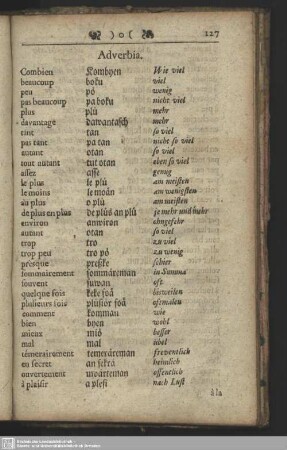 127
Adverbia.
Combien Kombyen Wie viel
beaucoup boku viel
peu pö wenig
pas beaucoup pa boku nicht viel
plus plü mehr
davantage dawantasch mehr
tant tan so viel
pas tant pa tan nicht so viel
autant otan so viel
tout autant tut otan eben so viel
assez asse genug
le plus le plü am meisten
le moins le moän am wenigsten
au plus o plü am meisten
de plus en plus de plüs an plü je mehr und mehr
environ anwiron ohngefehr
autant otan so viel
trop tro zu viel
trop peu tro pö zu wenig
presque preske schier
sommairement sommäreman in Summa
souvent suwan oft
quelque fois keke foä bisweilen
plusieurs fois plusiör foä oftmalen
comment komman wie
bien byen wohl
mieux miö besser
mal mal übel
temerairement temeräreman freventlich
en secret an sekrä heimlich
ouvertement uwärteman offentlich
à plaisir a pläsi nach Lust
à la